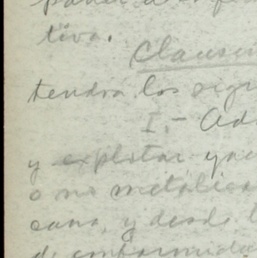 tiva.
Clausu
tendrá los sigu
I.- Ad
y explotar yac
o no metálica
cana, y desde l
de conformida